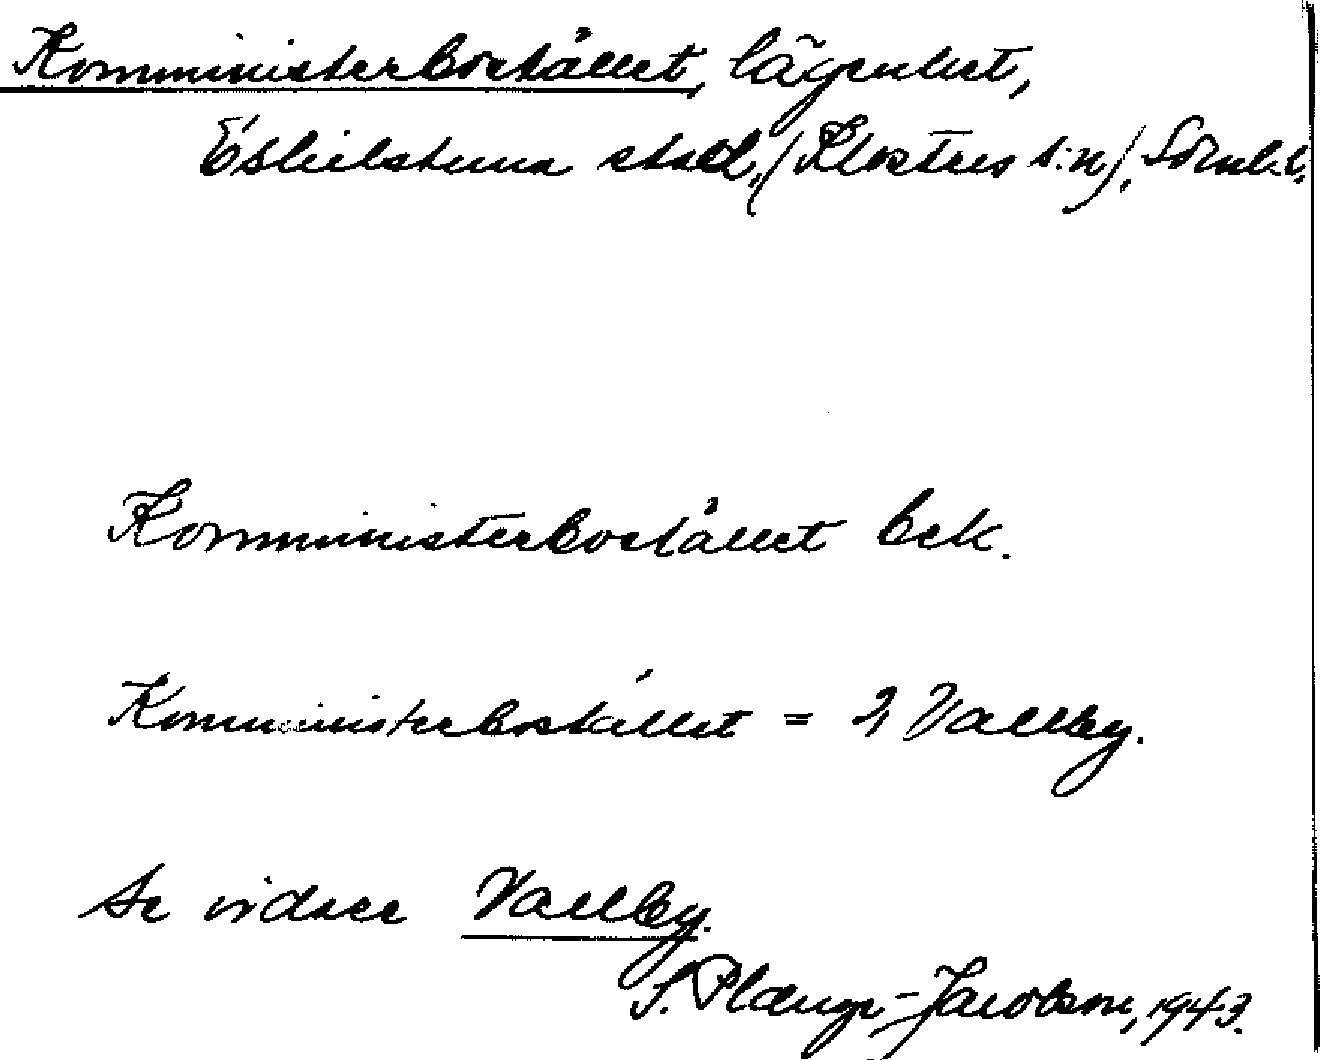 Komministerbostället, lägenhet,
Eskilstuna stad, (Klosters s:n), Sörml. l.
Komministerbostället bek.
Komministerbostället = 2 Vallby.
Se vidare Vallby.
S. Plænge-Jacobson, 1943.